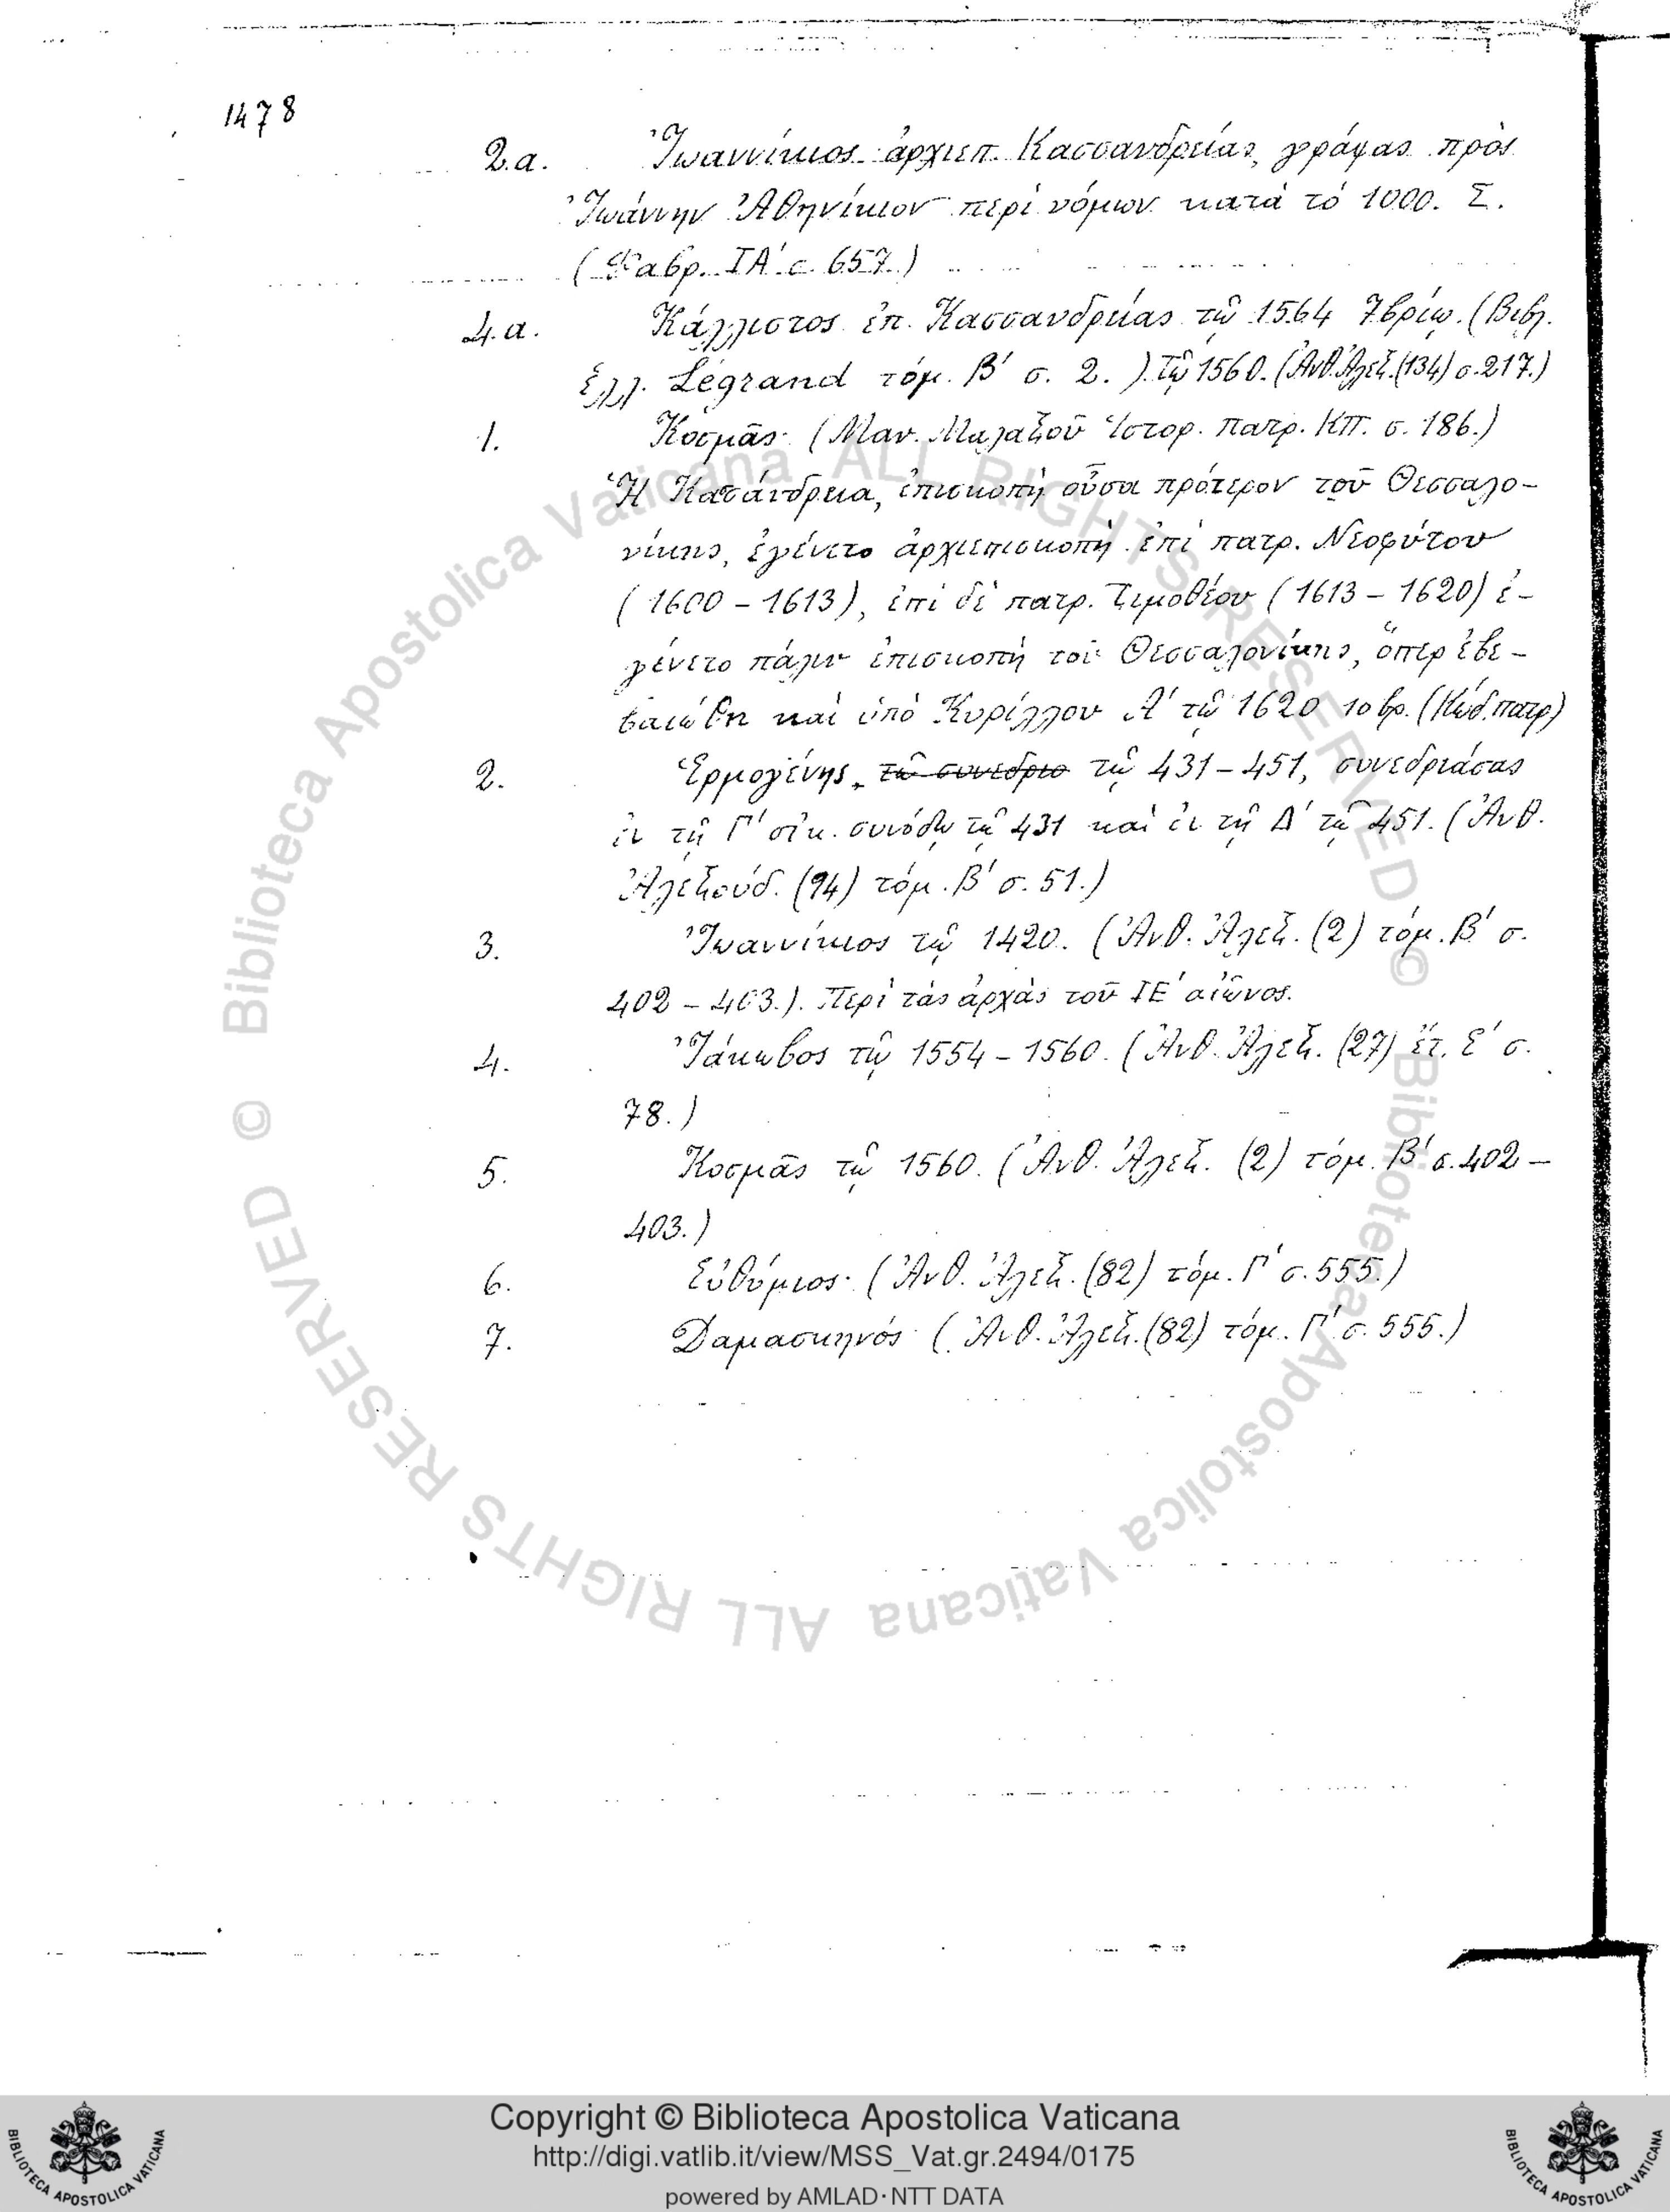 1478
2.α. Ἰωαννίκιος ἀρχιεπ. Κασσανδρείας, γράψας πρὸς
Ἰωάννην Ἀθηνίκιον περὶ νόμων κατὰ τὸ 1000. Σ.
(Φαβρ. ΙΑ΄ σ. 657.)
4.α. Κάλλιστος ἐπ. Κασσανδρείας τῷ 1564 7βρίῳ. (Βιβλ.
ἑλλ. Légrand τόμ. Β΄ σ. 2.) Τῷ 1560. (Ἀνθ. Ἀλεξ. (134) σ. 217.)
1. Κοσμᾶς· (Μαν. Μαλαξοῦ Ἱστορ. πατρ. ΚΠ. σ. 186.)
Ἡ Κασάνδρεια, ἐπισκοπὴ οὖσα πρότερον τοῦ Θεσσαλο-
νίκης, ἐγένετο ἀρχιεπισκοπὴ ἐπὶ πατρ. Νεοφύτου
(1600 – 1613), ἐπὶ δὲ πατρ. Τιμοθέου (1613 – 1620) ἐ-
γένετο πάλιν ἐπισκοπὴ τοῦ Θεσσαλονίκης, ὅπερ ἐβε-
βαιώθη καὶ ὑπὸ Κυρίλλου Α΄ τῷ 1620 10βρ. (Κώδ. πατρ)
2. Ἑρμογένης, τῷ συνεδριο τῷ 431 – 451, συνεδριάσας
ἐν τῇ Γ΄ οἰκ. συνόδῳ τῷ 431 καὶ ἐν τῇ Δ΄ τῷ 451. (Ἀνθ.
Ἀλεξούδ. (94) τόμ. Β΄ σ. 51.)
3. Ἰωαννίκιος τῷ 1420. (Ἀνθ. Ἀλεξ. (2) τόμ. Β΄ σ.
402 – 403.). Περὶ τὰς ἀρχὰς τοῦ ΙΕ΄ αἰῶνος.
4. Ἰάκωβος τῷ 1554 – 1560. (Ἀνθ. Ἀλεξ. (27) ἔτ. Ε΄ σ.
78.)
5. Κοσμᾶς τῷ 1560. (Ἀνθ. Ἀλεξ. (2) τόμ. Β΄ σ. 402 –
403.)
6. Εὐθύμιος· (Ἀνθ. Ἀλεξ. (82) τόμ. Γ΄ σ. 555.)
7. Δαμασκηνός· (Ἀνθ. Ἀλεξ. (82) τόμ. Γ΄ σ. 555.)
© Biblioteca Apostolica Vaticana ALL RIGHTS RESERVED
© Biblioteca Apostolica Vaticana ALL RIGHTS RESERVED
Copyright © Biblioteca Apostolica Vaticana
http://digi.vatlib.it/view/MSS_Vat.gr.2494/0175
powered by AMLAD·NTT DATA
BIBLIOTECA APOSTOLICA VATICANA
BIBLIOTECA APOSTOLICA VATICANA